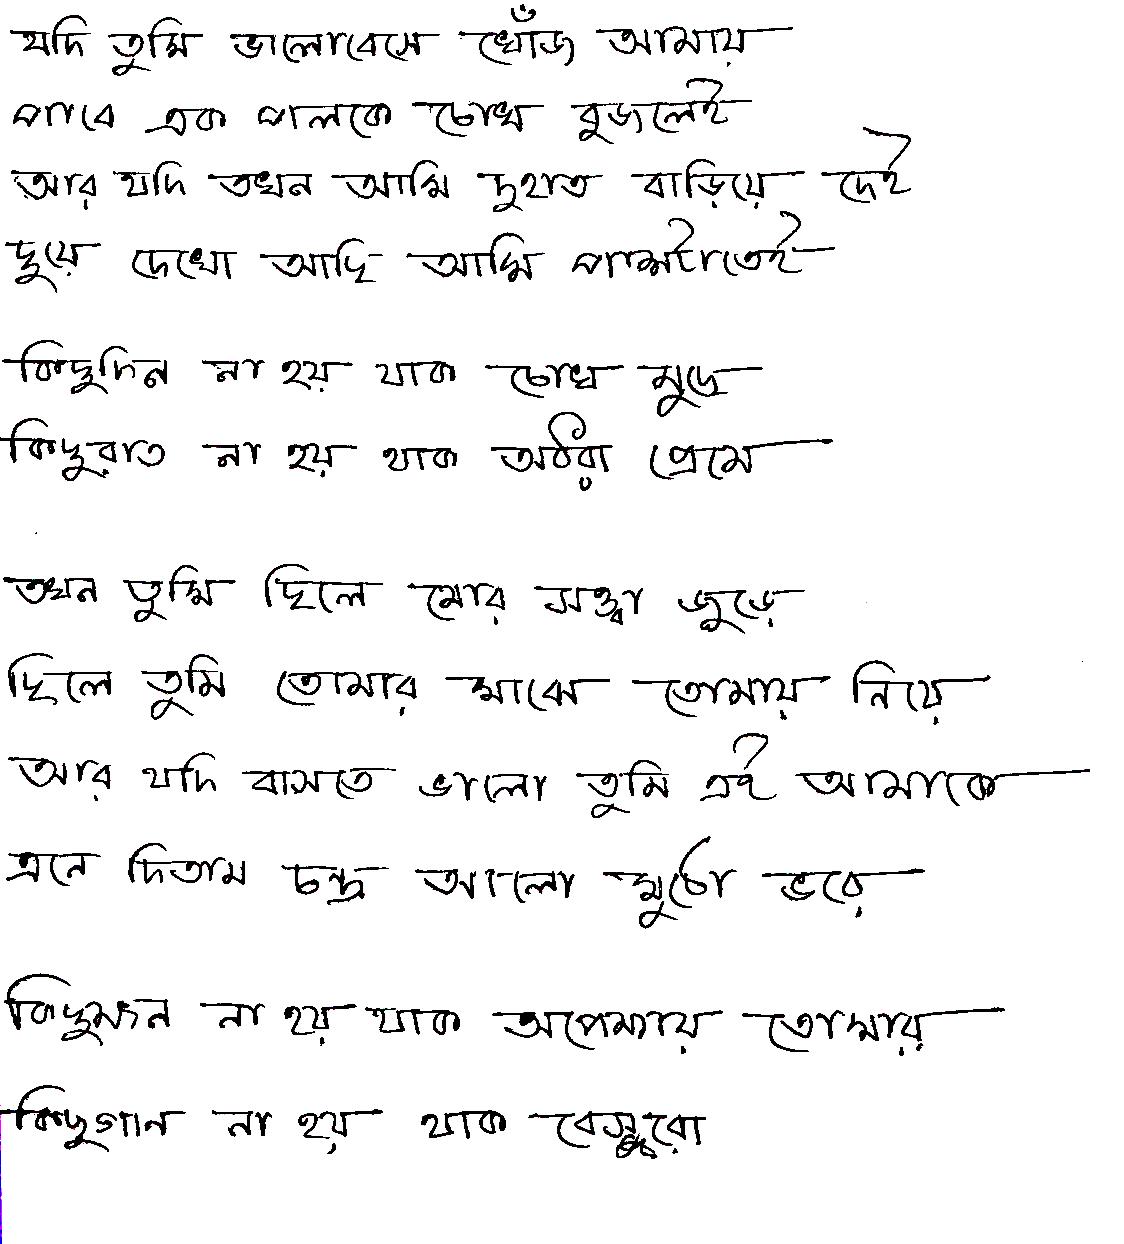 যদি তুমি ভালোবেসে খোঁজ আমায়
পাবে এক পালকে চোখ বুজলেই
আর যদি তখন আমি দুহাত বাড়িয়ে দেই
ছুয়ে দেখো আছি আমি পাশটাতেই
কিছুদিন না হয় যাক চোখ মুছে
কিছুরাত না হয় থাক অঠরা প্রেমে
তখন তুমি ছিলে মোর সত্ত্বা জুড়ে
ছিলে তুমি তোমার মাঝে তোমায় নিয়ে
আর যদি বাসতে ভালো তুমি এই আমাকে
এনে দিতাম চন্দ্র আলো মুঠো ভরে
কিছুক্ষন না হয় যাক অপেক্ষায় তোমার
কিছুগান না হয় থাক বেসুরো